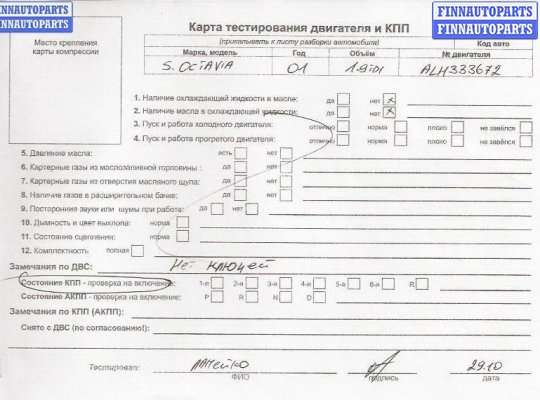 FINNAUTOPARTS FINNAUTOPARTS
FINNAUTOPARTS FINNAUTOPARTS
Карта тестирования двигателя и КПП
Место крепления
карты компрессии
(прикалывать к листу разборки автомобиля) Код авто
Марка, модель Год Объём № двигателя
S. OCTAVIA 01 1.9 TDI ALH333672
1. Наличие охлаждающей жидкости в масле: да нет X
2. Наличие масла в охлаждающей жидкости: да нет X
3. Пуск и работа холодного двигателя: отлично норма плохо не завёлся
4. Пуск и работа прогретого двигателя: отлично норма плохо не завёлся
5. Давление масла: есть нет
6. Картерные газы из маслозаливной горловины : да нет
7. Картерные газы из отверстия масляного щупа: да нет
8. Наличие газов в расширительном бачке: да нет
9. Посторонние звуки или шумы при работе: да нет
10. Дымность и цвет выхлопа: норма
11. Состояние сцепления: норма
12. Комплектность полная
Замечания по ДВС: Нет ключей
Состояние КПП - проверка на включение: 1-я 2-я 3-я 4-я 5-я 6-я R
Состояние АКПП - проверка на включение: P R N D
Замечания по КПП (АКПП):
Снято с ДВС (по согласованию!):
Тестировал: 29.10
ФИО подпись дата